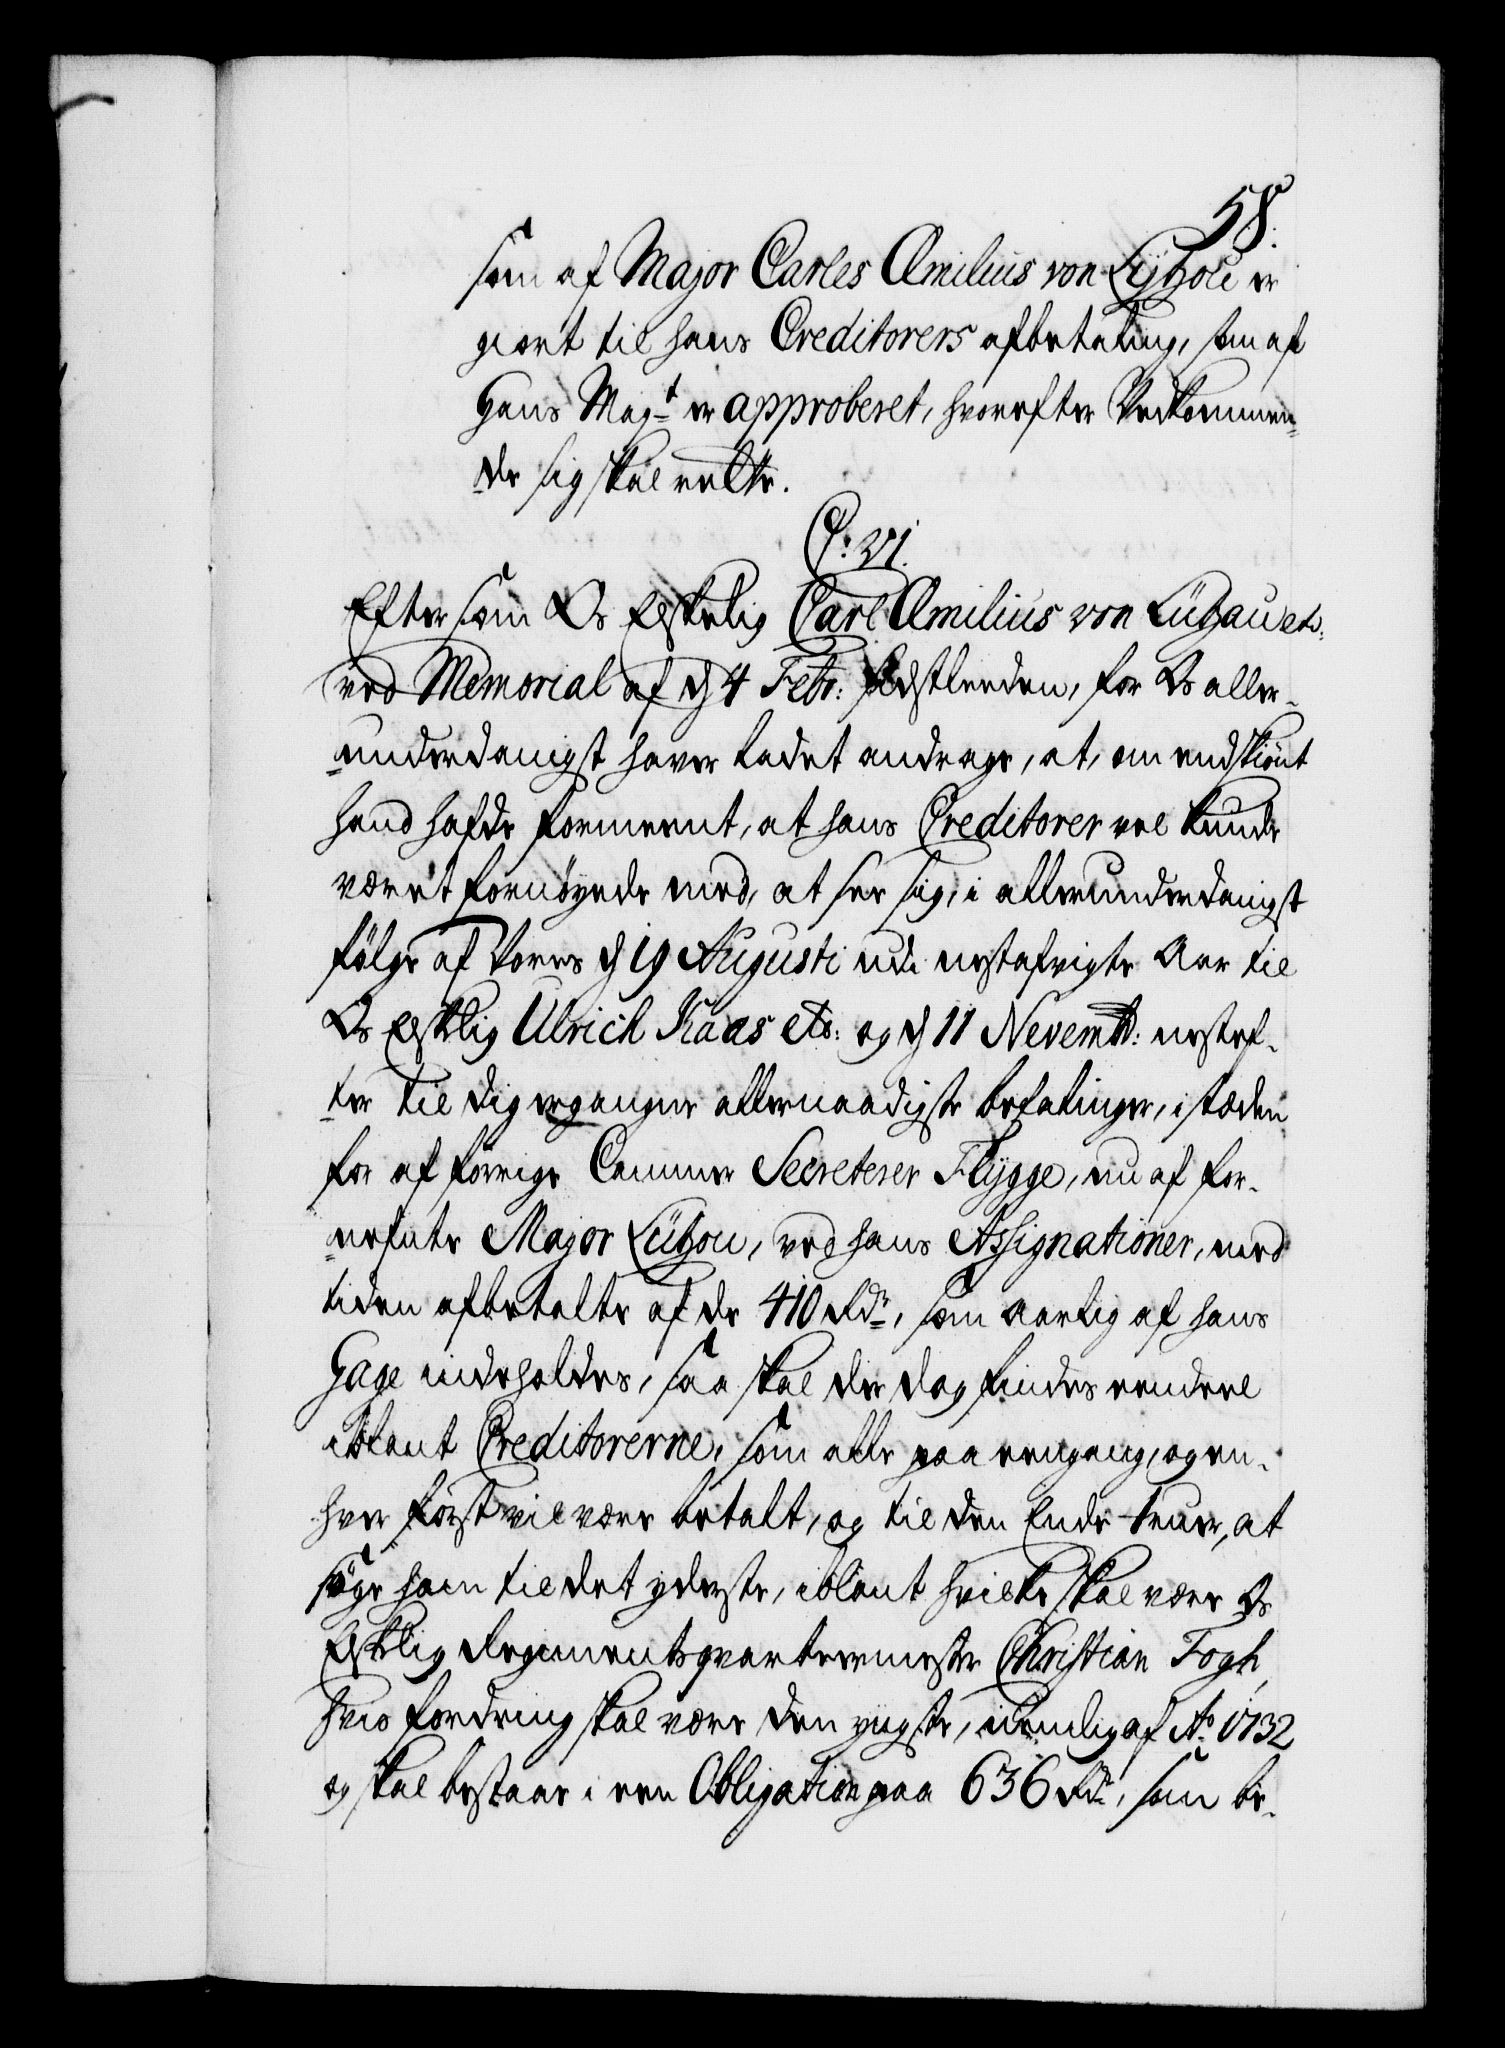 58.
som af Major Carles Æmilius von Lÿtzou er
giort til hans Creditorers afbetaling, som af
Hans May.t er approberet, hvorefter Vedkommen-
de sig skal rette.
C: VI.
Eftersom Os Elskelig Carl Æmilius von Lützau etc:
ved Memorial af d 4 Febr: sidstleeden, for Os aller-
underdanigst haver ladet andrage, at, om endskiönt
hand hafde formeent, at hans Creditorer vel kunde
været fornöyede med, at see sig, i allerunderdanigst
fölge af Vores d 19 Augusti udi nestafvigte Aar til
Os Elskelig Ulrich Kaas etc: og d 11 Novembr: nestef-
ter til dig ergangne allernaadigste befalinger, i stæden
for af forrige Cammer Secreterer Flÿgge, nu af for-
nefnte Major Lützou, ved hans Assignationer, med
tiden afbetalte af de 410 Rdr, som aarlig af hans
Gage indeholdes, saa skal der dog findes eendeel
iblant Creditorerne, som alle paa eengang, og en-
hver först vil være betalt, og til den Ende truer, at
söge ham til det yderste, iblant hvilke skal være Os
Elskelig Regimentsqvarteermester Christian Fogh,
hvis fordring skal være den yngste, nemlig af Ao 1732
og skal bestaae i een Obligation paa 636 Rdr, som be-